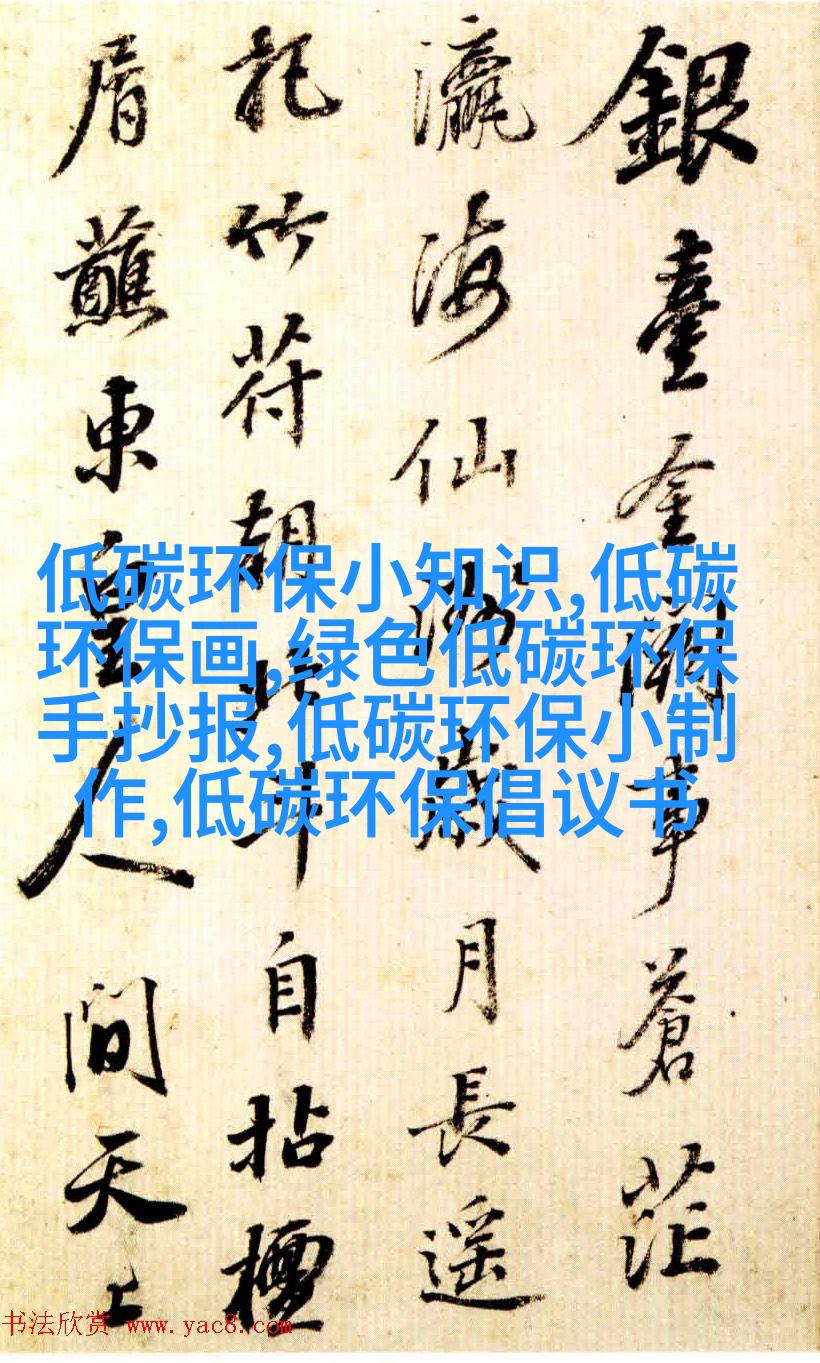 銀臺金闕事蒼茫
瀛海仙洲歲月長遥
記竹符朝北斗自拈檀
屑蘸東皇人間天上
低碳环保小知识,低碳
环保画,绿色低碳环保
手抄报,低碳环保小制
作,低碳环保倡议书
书法欣赏 www.yac8.com